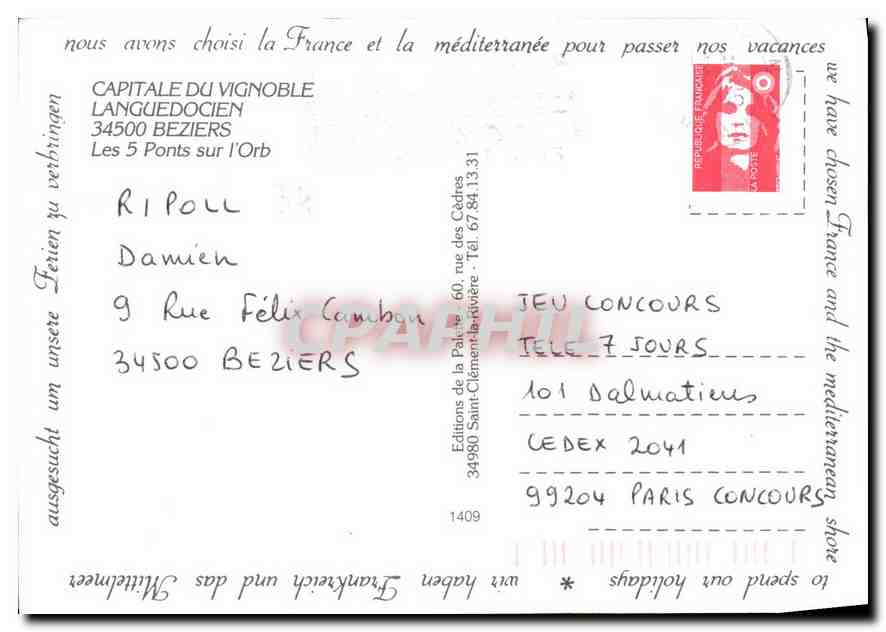 nous avons choisi la France et la méditerranée pour passer nos vacances
we have chosen France and the mediterranean shore
to spend our holidays * wir haben Frankreich und das Mittelmeer
ausgesucht um unsere Ferien zu verbringen
CAPITALE DU VIGNOBLE
LANGUEDOCIEN
34500 BEZIERS
Les 5 Ponts sur l'Orb
RIPOLL
Damien
9 Rue Félix Cambon
34500 BEZIERS
Editions de la Palette 60, rue des Cèdres
34980 Saint-Clément-la-Rivière - Tél. 67.84.13.31
1409
REPUBLIQUE FRANÇAISE
LA POSTE
JEU CONCOURS
TELE 7 JOURS
101 Dalmatiens
CEDEX 2041
99204 PARIS CONCOURS
CPAPHIL